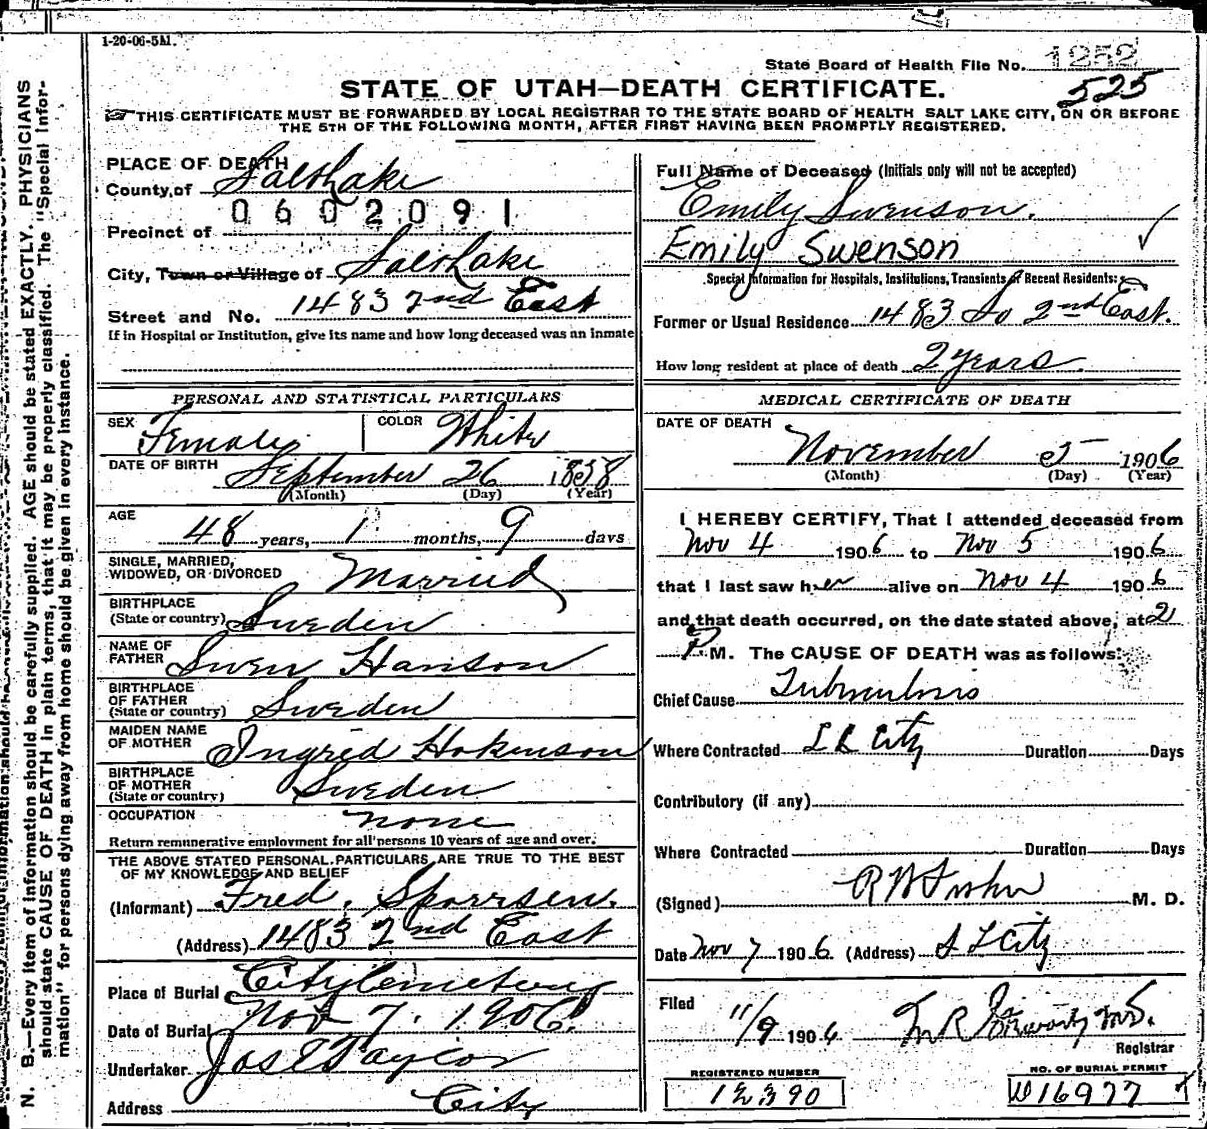 1-20-06-5M.
State Board of Health File No. 1252
525
STATE OF UTAH—DEATH CERTIFICATE.
THIS CERTIFICATE MUST BE FORWARDED BY LOCAL REGISTRAR TO THE STATE BOARD OF HEALTH SALT LAKE CITY, ON OR BEFORE
THE 5TH OF THE FOLLOWING MONTH, AFTER FIRST HAVING BEEN PROMPTLY REGISTERED.
PLACE OF DEATH
County of Salt Lake
0602091
Precinct of
City, Town or Village of Salt Lake
Street and No. 1483 2nd East
If in Hospital or Institution, give its name and how long deceased was an inmate
PERSONAL AND STATISTICAL PARTICULARS
SEX Female COLOR White
DATE OF BIRTH September 26 1858
(Month) (Day) (Year)
AGE
48 years, 1 months, 9 days
SINGLE, MARRIED,
WIDOWED, OR DIVORCED Married
BIRTHPLACE
(State or country) Sweden
NAME OF
FATHER Swen Hanson
BIRTHPLACE
OF FATHER
(State or country) Sweden
MAIDEN NAME
OF MOTHER Ingrid Hokinson
BIRTHPLACE
OF MOTHER
(State or country) Sweden
OCCUPATION none
Return remunerative employment for all persons 10 years of age and over.
THE ABOVE STATED PERSONAL PARTICULARS ARE TRUE TO THE BEST
OF MY KNOWLEDGE AND BELIEF
(Informant) Fred. Sparrsen.
(Address) 1483 2nd East
Place of Burial City Cemetery
Date of Burial Nov 7. 1906.
Undertaker Jos E Taylor
Address City
Full Name of Deceased (Initials only will not be accepted)
Emily Swenson.
Emily Swenson
Special Information for Hospitals, Institutions, Transients or Recent Residents:
Former or Usual Residence 1483 So 2nd East.
How long resident at place of death 2 years.
MEDICAL CERTIFICATE OF DEATH
DATE OF DEATH
November 5 1906
(Month) (Day) (Year)
I HEREBY CERTIFY, That I attended deceased from
Nov 4 1906 to Nov 5 1906
that I last saw her alive on Nov 4 1906
and that death occurred, on the date stated above, at 2
P.M. The CAUSE OF DEATH was as follows:
Chief Cause Tuberculosis
Where Contracted S L City Duration Days
Contributory (if any)
Where Contracted Duration Days
(Signed) M. D.
Date Nov 7 1906 (Address) S L City
Filed
11/9 1906 M.D.
Registrar
REGISTERED NUMBER
12390
NO. OF BURIAL PERMIT
D16977
N. B.—Every item of information should be carefully supplied. AGE should be stated EXACTLY. PHYSICIANS
should state CAUSE OF DEATH in plain terms, that it may be properly classified. The "Special Infor-
mation" for persons dying away from home should be given in every instance.